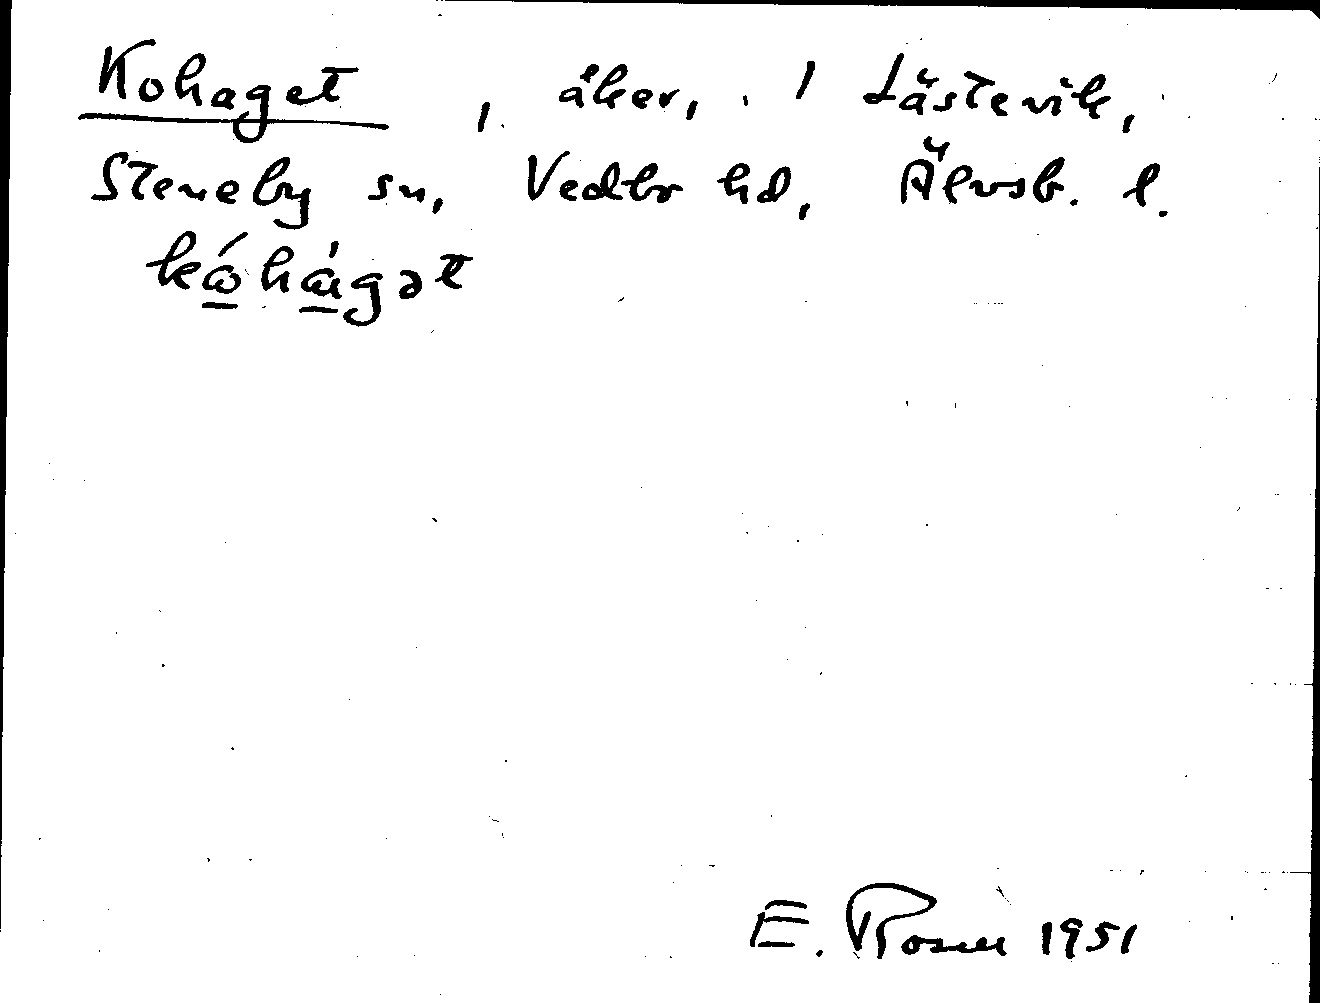 Kohaget, åker, i Lästevik,
Steneby sn, Vedbo hd, Älvsb. l.
kóhágət
E. Rosen 1951